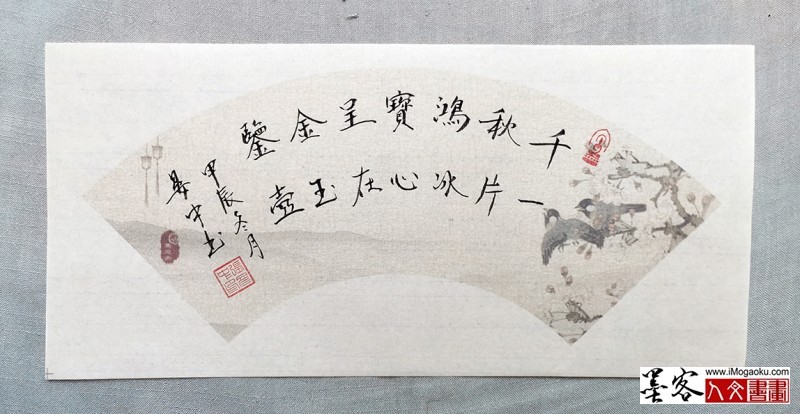 千秋鴻寶呈金鑒
一片冰心在玉壺
甲辰冬月
中书
www.iMogaoku.com
墨客人文書畫